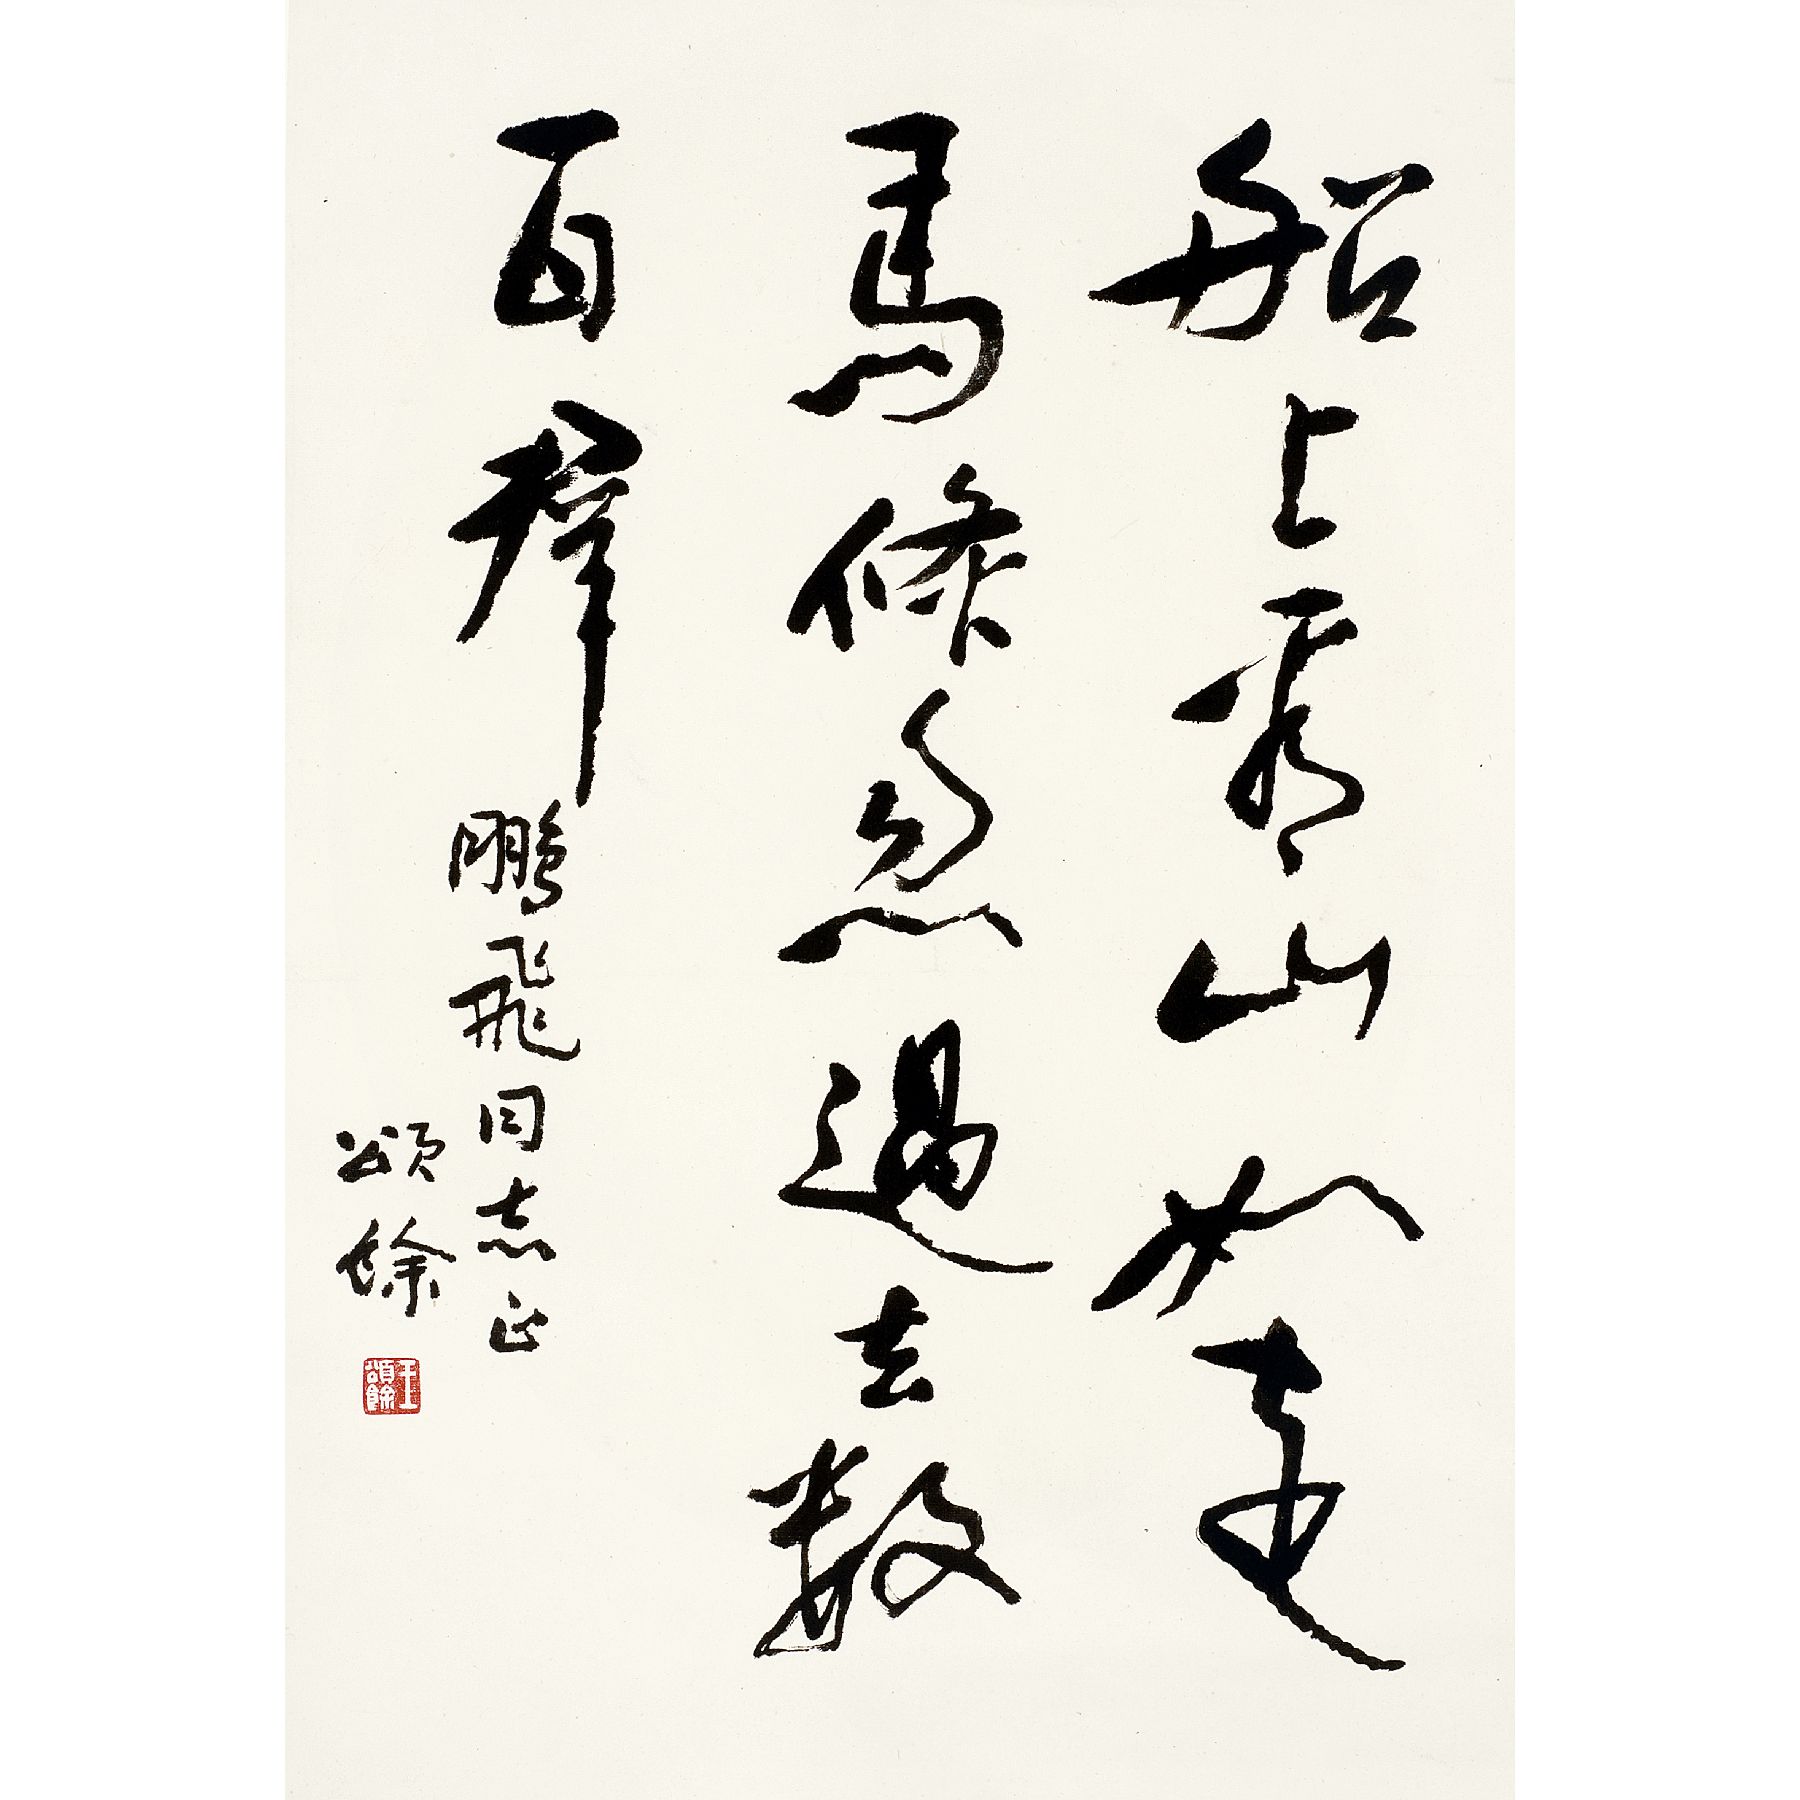 船上看山如走
馬倏忽過去數
百群
鵬飛同志正
頌餘
王頌餘